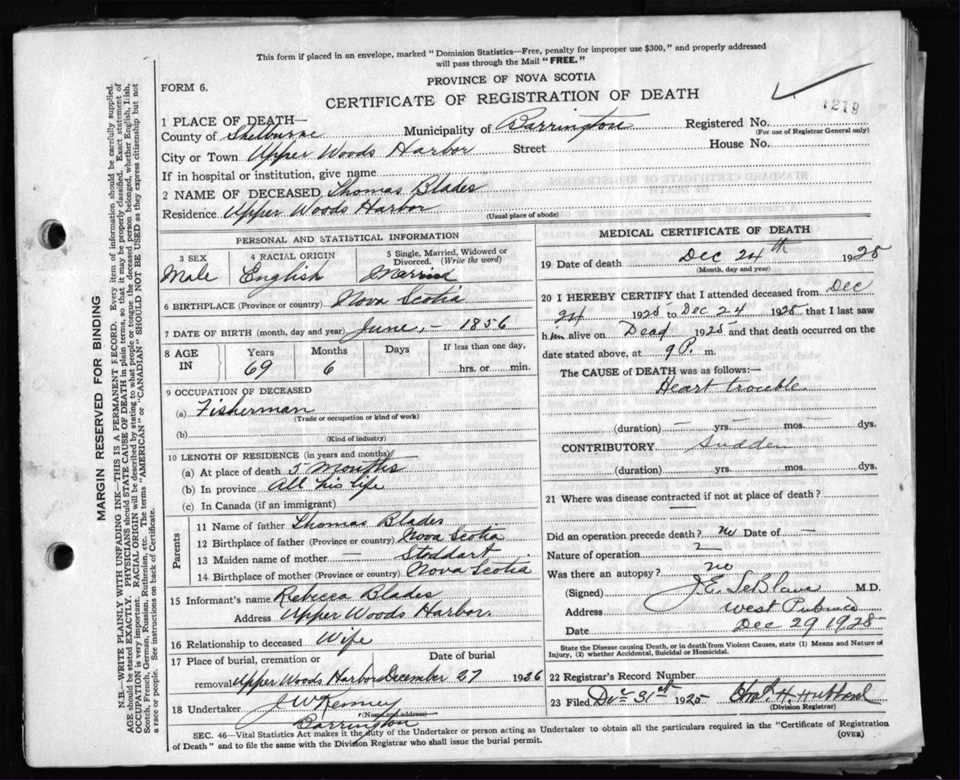 This form if placed in an envelope, marked "Dominion Statistics—Free, penalty for improper use $300," and properly addressed
will pass through the Mail "FREE."
PROVINCE OF NOVA SCOTIA
FORM 6.
CERTIFICATE OF REGISTRATION OF DEATH
1219
1 PLACE OF DEATH—
County of Shelburne Municipality of Barrington Registered No.
(For use of Registrar General only)
City or Town Upper Woods Harbor Street House No.
If in hospital or institution, give name
2 NAME OF DECEASED Thomas Blades
Residence Upper Woods Harbor
(Usual place of abode)
PERSONAL AND STATISTICAL INFORMATION
3 SEX 4 RACIAL ORIGIN 5 Single, Married, Widowed or
Divorced. (Write the word)
Male English Married
6 BIRTHPLACE (Province or country) Nova Scotia
7 DATE OF BIRTH (month, day and year) June, - 1856
8 AGE IN Years Months Days If less than one day,
69 6 hrs. or min.
9 OCCUPATION OF DECEASED
(a) Fisherman
(Trade or occupation or kind of work)
(b)
(Kind of industry)
10 LENGTH OF RESIDENCE (in years and months)
(a) At place of death 5 Months
(b) In province All his life
(c) In Canada (if an immigrant)
Parents
11 Name of father Thomas Blades
12 Birthplace of father (Province or country) Nova Scotia
13 Maiden name of mother — Stoddart
14 Birthplace of mother (Province or country) Nova Scotia
15 Informant's name Rebecca Blades
Address Upper Woods Harbor
16 Relationship to deceased Wife
17 Place of burial, cremation or Date of burial
removal Upper Woods Harbor December 27 1926
18 Undertaker J W Kenney
(Name and address)
Barrington
MEDICAL CERTIFICATE OF DEATH
19 Date of death Dec 24th 1925
(Month, day and year)
20 I HEREBY CERTIFY that I attended deceased from Dec
24 1925 to Dec 24 1925 that I last saw
him alive on Dead 1925 and that death occurred on the
date stated above, at 9 P. m.
The CAUSE of DEATH was as follows:—
Heart trouble
(duration) — yrs. — mos. dys.
CONTRIBUTORY Sudden
(duration) yrs. mos. dys.
21 Where was disease contracted if not at place of death?
—
Did an operation precede death? No Date of —
Nature of operation
Was there an autopsy? no
(Signed) J.E. LeBlanc M.D.
Address West Pubnico
Date Dec 29 1925
State the Disease causing Death, or in death from Violent Causes, state (1) Means and Nature of
Injury, (2) whether Accidental, Suicidal or Homicidal.
22 Registrar's Record Number
23 Filed Dec 31st 1925 H. Hubbard
(Division Registrar)
SEC. 46—Vital Statistics Act makes it the duty of the Undertaker or person acting as Undertaker to obtain all the particulars required in the "Certificate of Registration
of Death" and to file the same with the Division Registrar who shall issue the burial permit. (OVER)
MARGIN RESERVED FOR BINDING
N.B.—WRITE PLAINLY WITH UNFADING INK—THIS IS A PERMANENT RECORD. Every item of information should be carefully supplied.
AGE should be stated EXACTLY. PHYSICIANS should STATE CAUSE OF DEATH in plain terms, so that it may be properly classified. Exact statement of
OCCUPATION is very important. RACIAL ORIGIN will be described by stating to what people or tongue the deceased person belonged, whether English, Irish,
Scotch, French, German, Russian, Ruthenian, etc. The terms "AMERICAN" or "CANADIAN" SHOULD NOT BE USED as they express citizenship but not
a race or people. See instructions on back of Certificate.